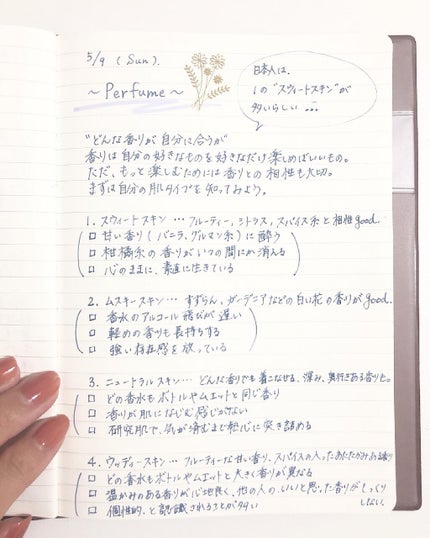 5/9 (Sun).
~Perfume~
日本人は、
1の"スウィートスキン"が
多いらしい…
"どんな香りが自分に合うか"
香りは自分の好きなものを好きなだけ楽しめばいいもの。
ただ、もっと楽しむためには香りとの相性も大切。
まずは自分の肌タイプを知ってみよう。
1. スウィートスキン … フルーティー、シトラス、スパイス系と相性good.
□ 甘い香り(バニラ、グルマン系)に酔う
□ 柑橘系の香りがいつの間にか消える
□ 心のままに、素直に生きている
2. ムスキースキン … すずらん、ガーデニアなどの白い花の香りがgood.
□ 香水のアルコール飛びが遅い
□ 軽めの香りも長持ちする
□ 強い存在感を放っている
3. ニュートラルスキン … どんな香りでも着こなせる、深み、奥行ある香りも。
□ どの香水もボトルやムエットと同じ香り
□ 香りが肌になじむ感じがない
□ 研究肌で、気が済むまで熱心に突き詰める
4. ウッディースキン … フルーティーな甘い香り、スパイスの入ったあたたかみある香り
□ どの香水もボトルやムエットと大きく香りが異なる
□ 温かみのある香りが心地良く、他の人のいいと思った香りがしっくり
しない。
□ 個性的、と認識されることが多い